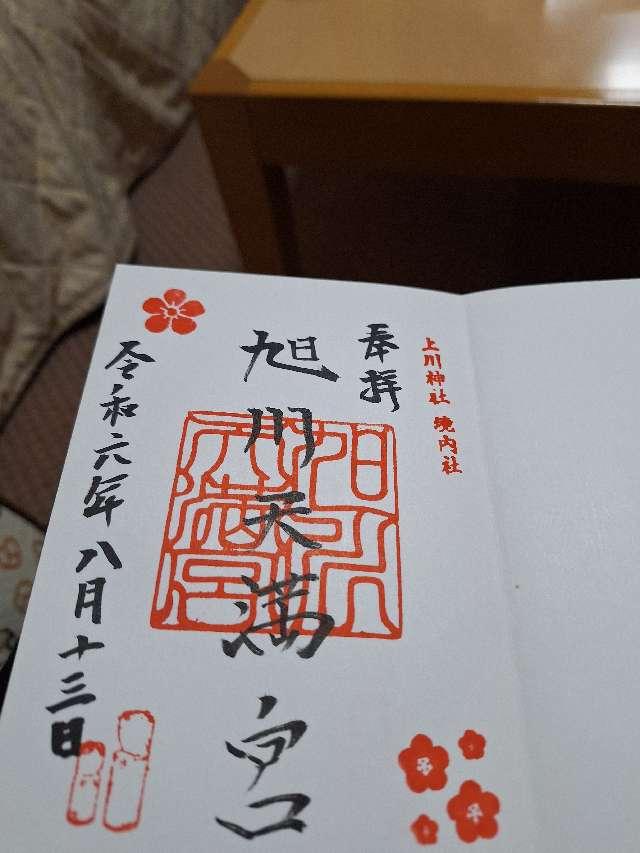 上川神社 境内社
奉拝
旭川天満宮
令和六年八月十三日